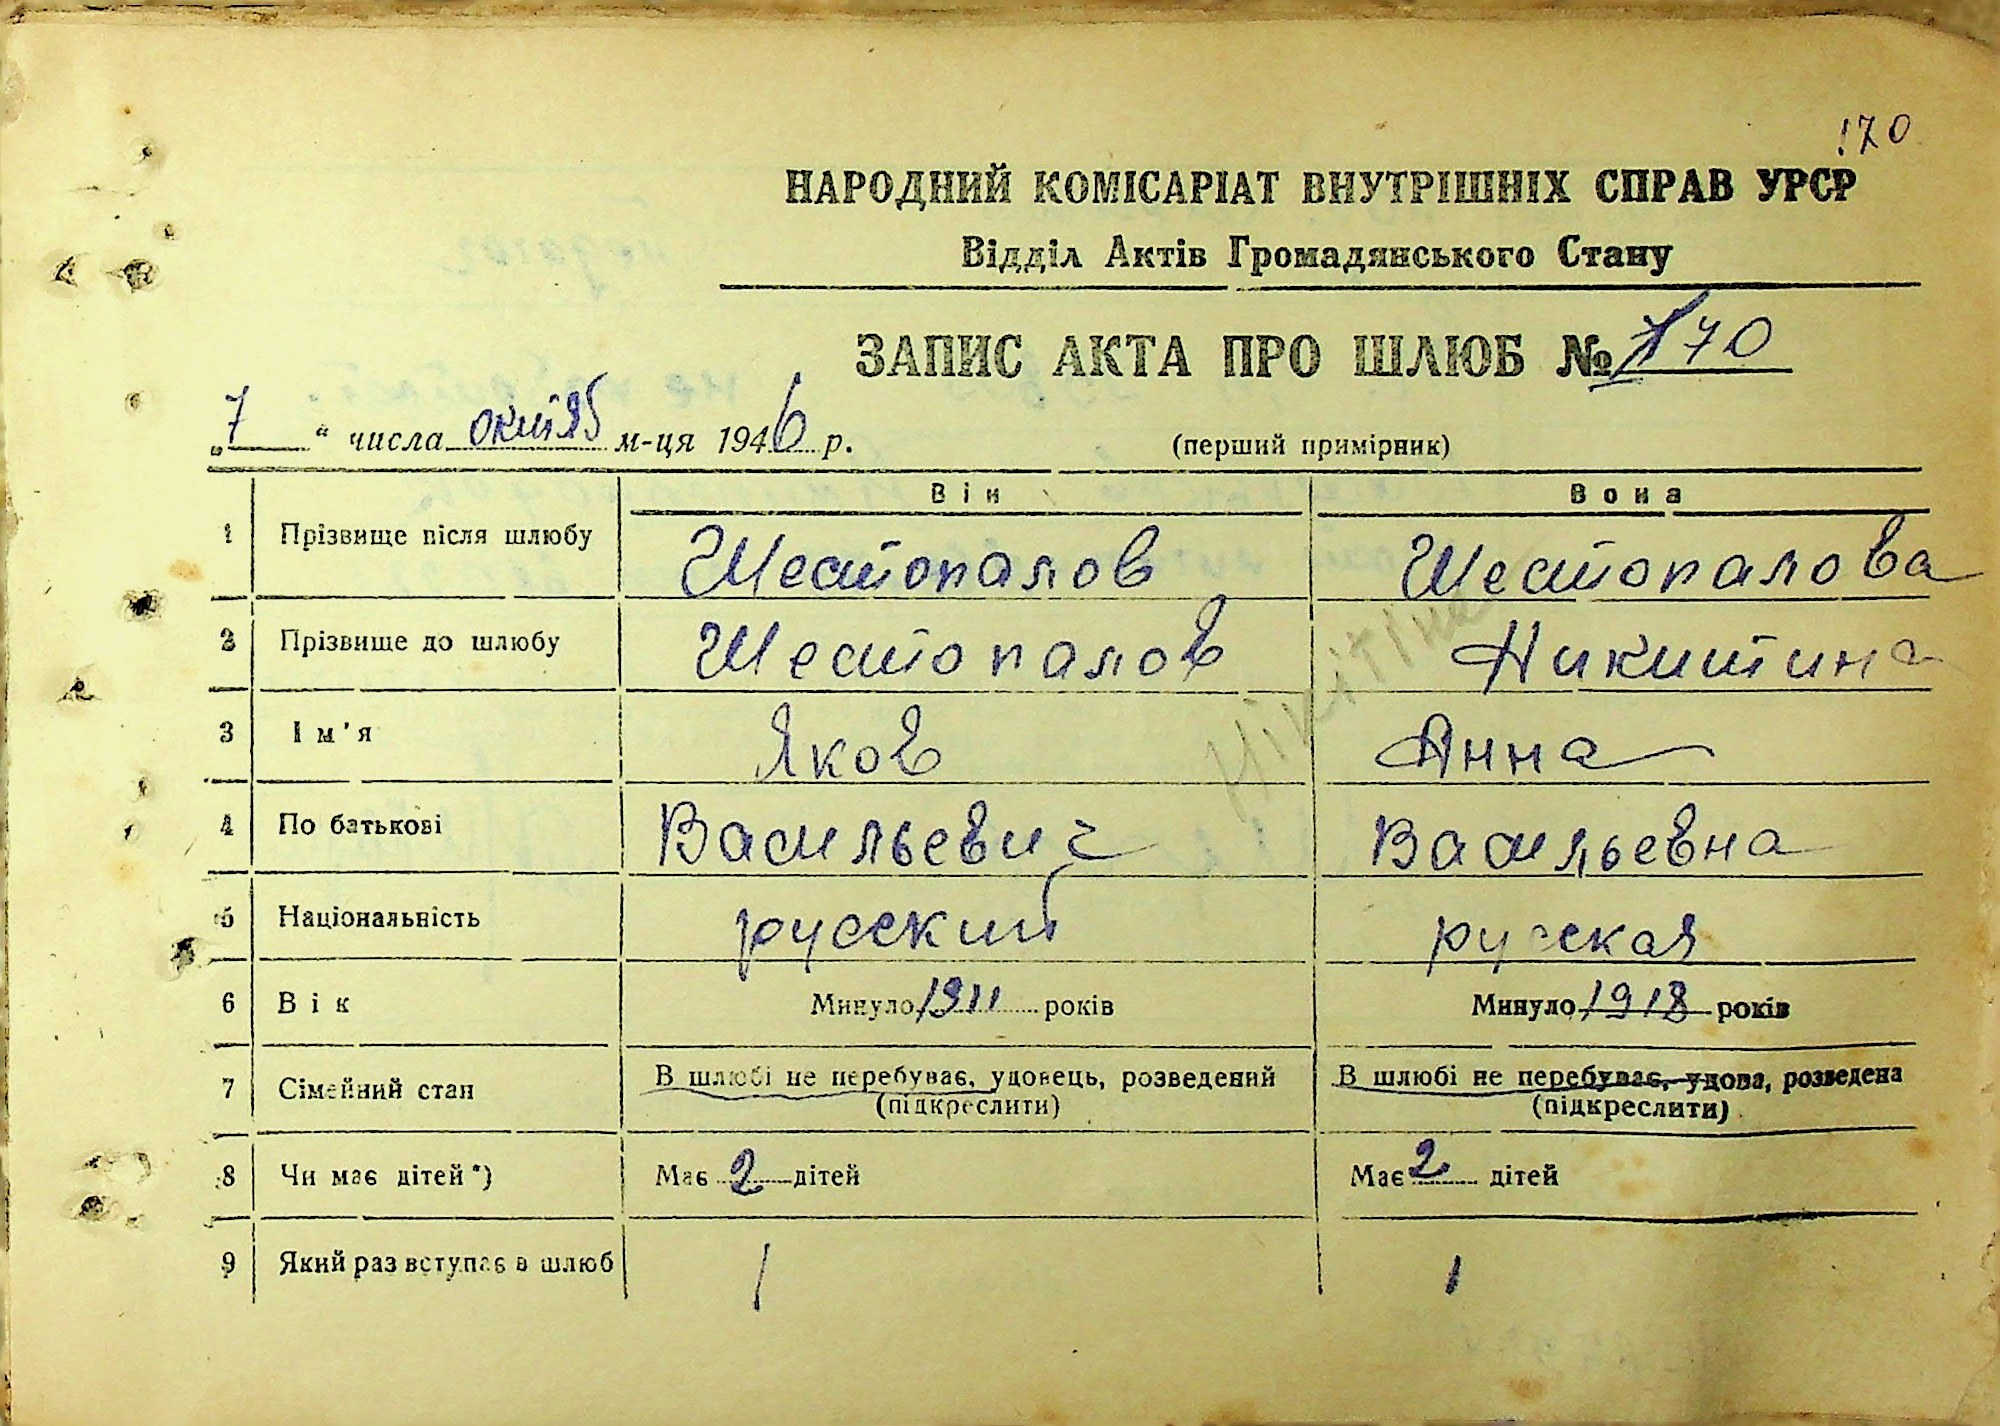 170
НАРОДНИЙ КОМІСАРІАТ ВНУТРІШНІХ СПРАВ УРСР
Відділ Актів Громадянського Стану
ЗАПИС АКТА ПРО ШЛЮБ № 170
„7“ числа октяб м-ця 1946 р. (перший примірник)
Він Вона
1 Прізвище після шлюбу Шестопалов Шестопалова
2 Прізвище до шлюбу Шестопалов Никитина
Нікітіна
3 Ім'я Яков Анна
4 По батькові Васильевич Васильевна
5 Національність русский русская
6 Вік Минуло 1911 років Минуло 1918 років
7 Сімейний стан В шлюбі не перебуває, удовець, розведений В шлюбі не перебуває, удова, розведена
(підкреслити) (підкреслити)
8 Чи має дітей*) Має 2 дітей Має 2 дітей
9 Який раз вступає в шлюб 1 1